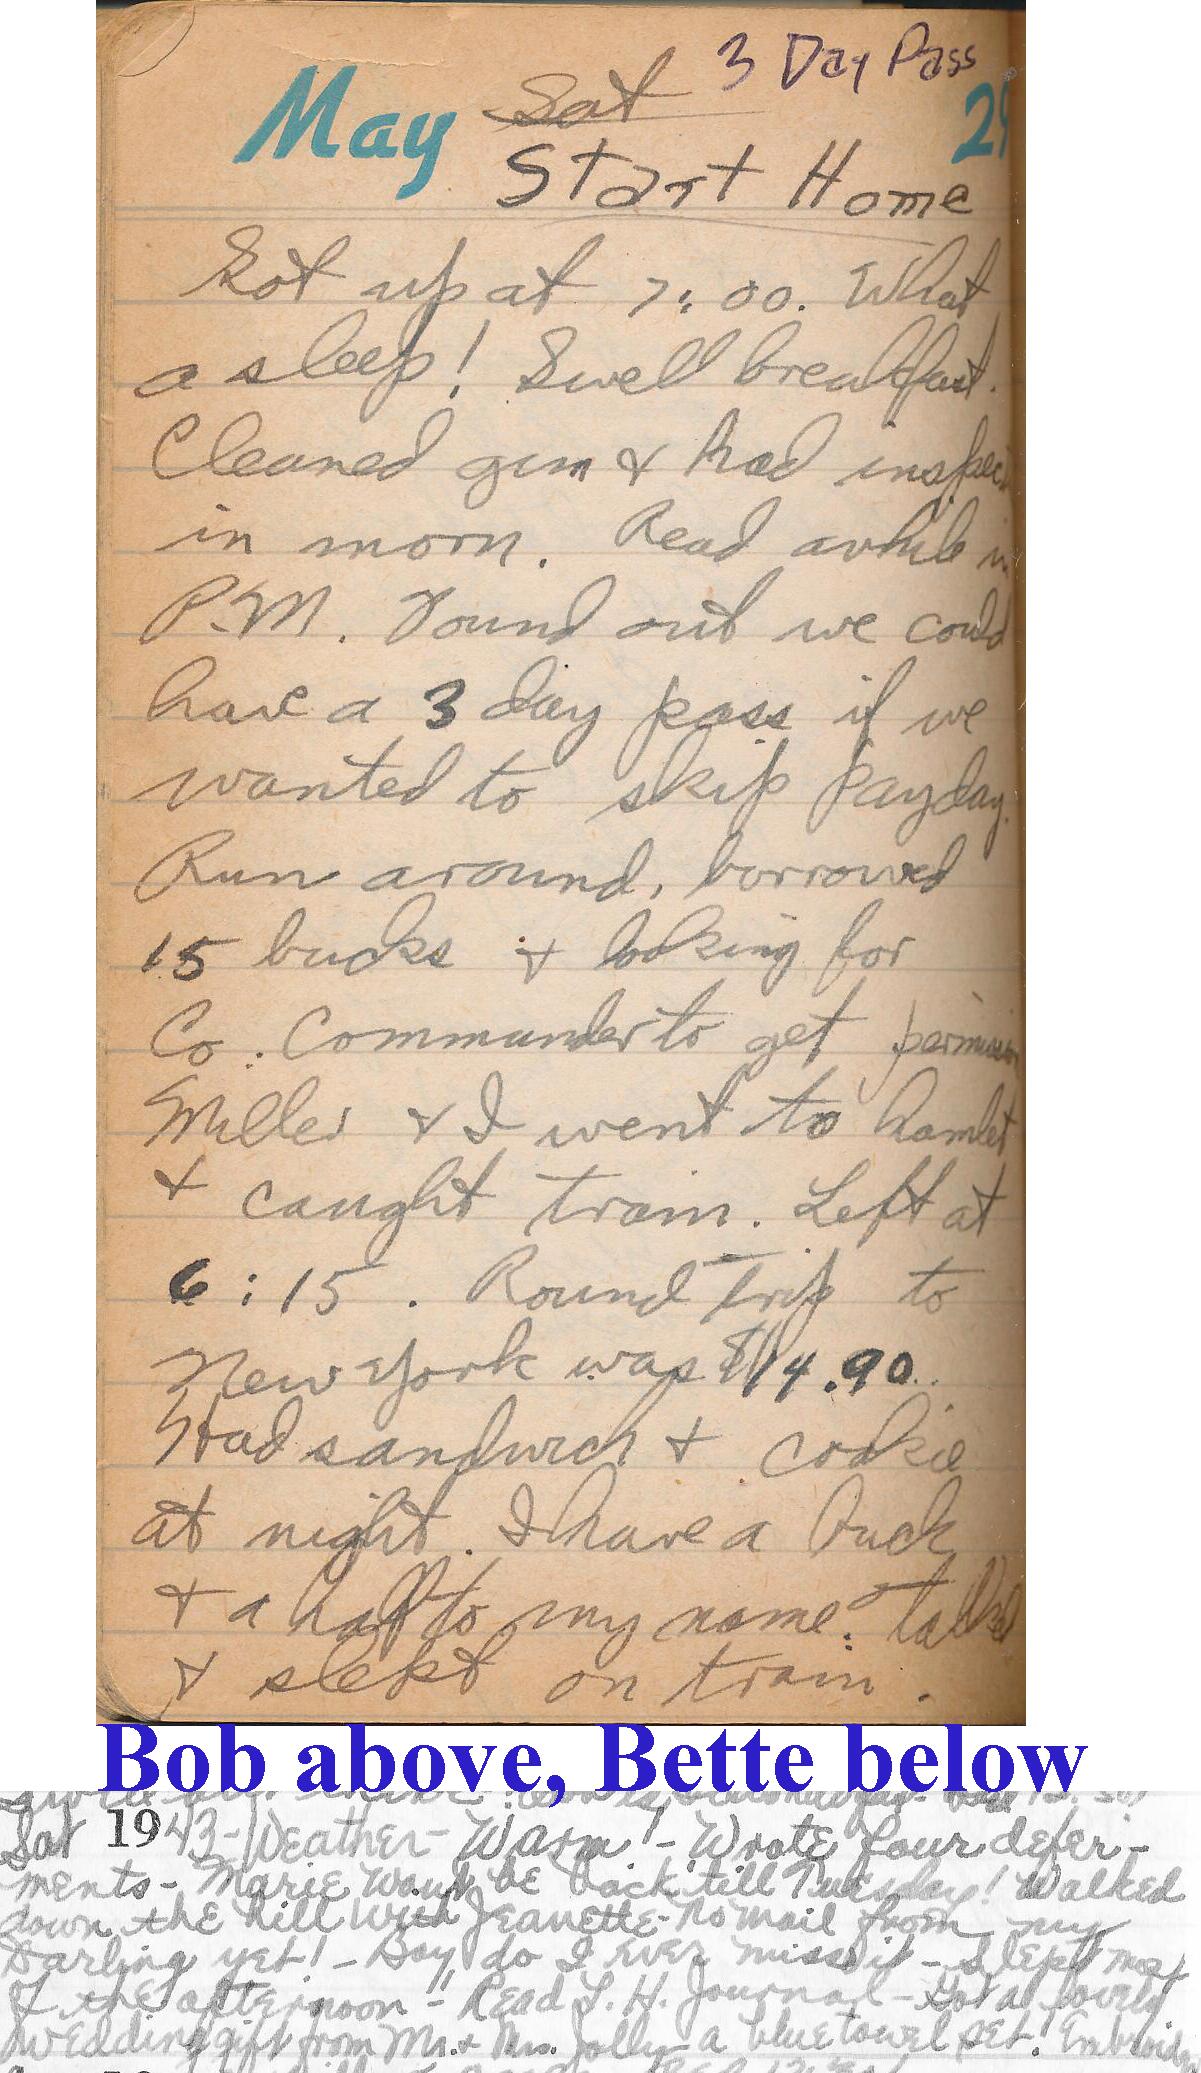 3 Day Pass
May Sat 29
Start Home
Got up at 7:00. What
a sleep! Swell breakfast.
Cleaned gun & had inspec
in morn. Read awhile in
P.M. Found out we could
have a 3 day pass if we
wanted to skip payday.
Run around, borrowed
15 bucks & looking for
Co. Commander to get permission
Miller & I went to Hamlet
& caught train. Left at
6:15. Round Trip to
New York was $14.90.
Had sandwich & cookie
at night. I have a buck
& a half to my name. talked
& slept on train.
Bob above, Bette below
Sat 1943-Weather-Warm!-Wrote four defer-
ments-Marie won't be back till Tuesday! Walked
down the hill with Jeanette-No mail from my
Darling yet!-Boy do I ever miss it-Slept most
of the afternoon-Read L.H. Journal-Got a lovely
wedding gift from Mr. & Mrs. Jolly-a blue towel set!